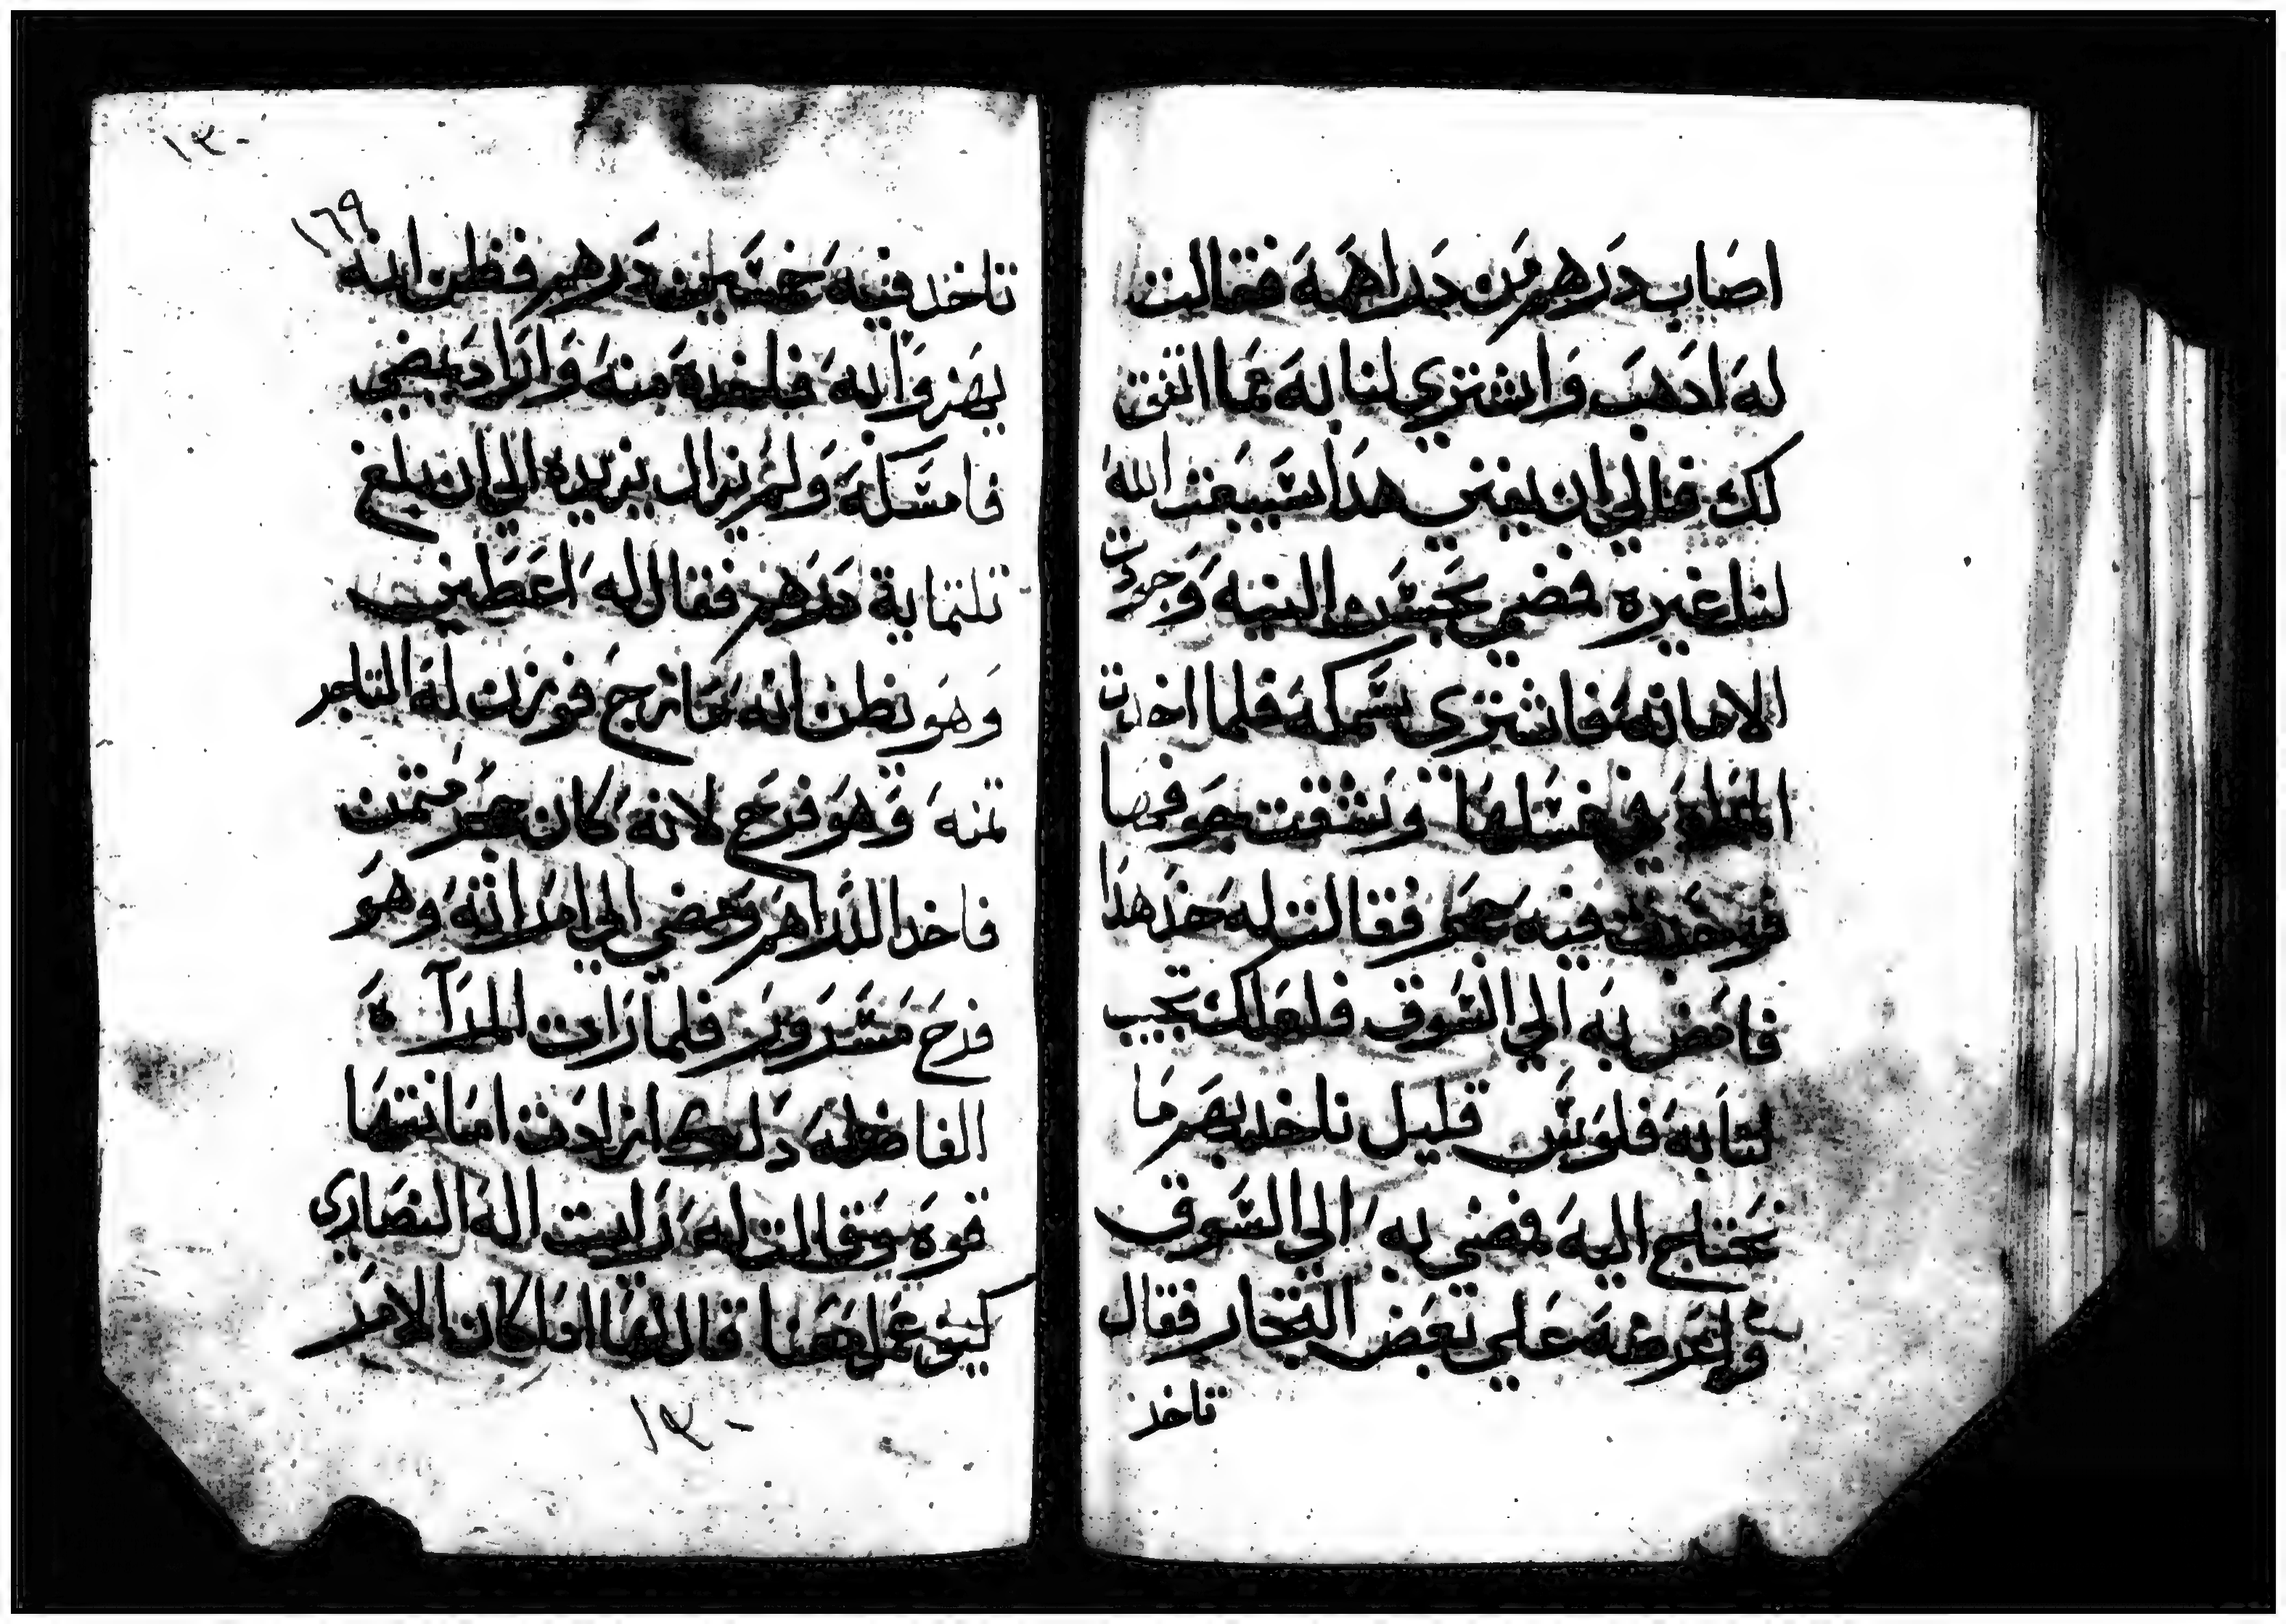 اصاب درهم من دراهمه فقالت
له ادهب واشتري لنا به مما اتفق
لك فالي ان يفنى هدا سيبعت الله
لنا غيره فمضي بحسن النيه وجودت
الامانه فاشترى سمكه فلما اخدت
المراه في غسلها وشقت جوفها
فوجدت فيه حجر فقالت له خد هدا
فامض به الي السوق فلعلك تجيب
لنا به فلوس قليل ناخد بهم ما
نحتاج اليه فمضي به الي السوق
وعرضه علي بعض التجار فقال
تاخد
١٣٠
١٦٩
تاخد فيه خمسين درهم فظن انه
يهزوا به فاخده منه واراد يمضي
فامسكه ولم يزال يزيده الي ان بلغ
تلتماية درهم فقال له اعطيني
وهو يظن انه مازح فوزن له التاجر
تمنه وهو فرح لانه كان حجر متمن
فاخد الدراهم ومضي الي امراته وهو
فرح مسرور فلما رات المرآه
الفاضله دلك ازادت امانتها
قوه وقالت له رايت اله النصاري
كيف عمل معنا قال لها اما كان الامر
١٣٠